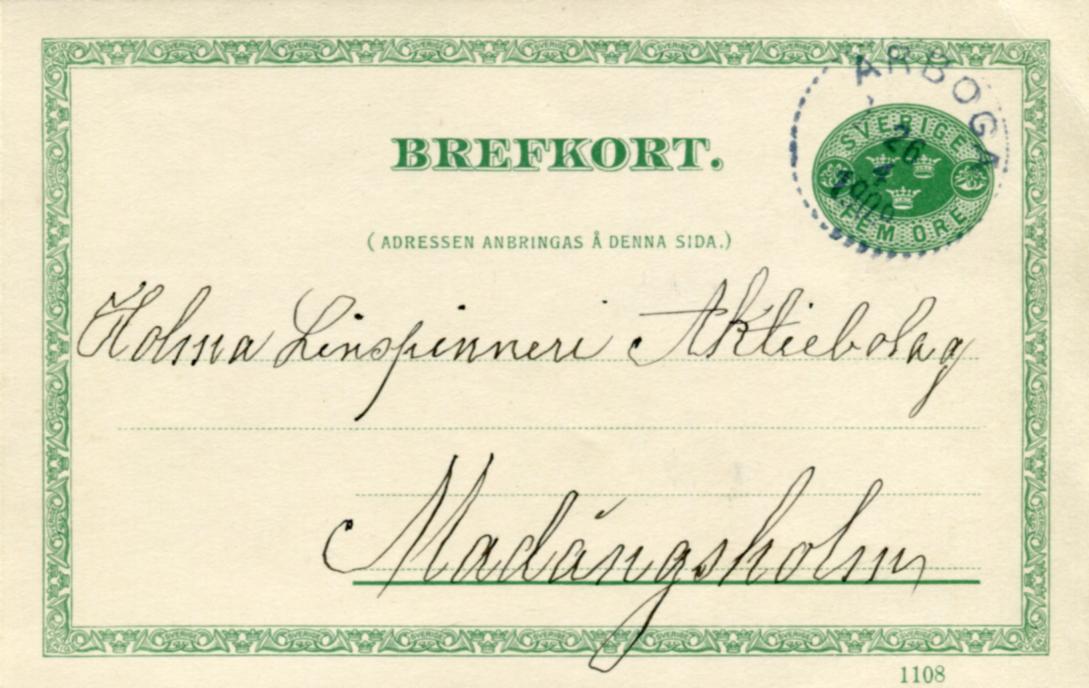 ARBOGA
26
4
SVERIGE
FEM ÖRE
BREFKORT.
(ADRESSEN ANBRINGAS Å DENNA SIDA.)
Holma Linspinneri Aktiebolag
Madängsholm
1108